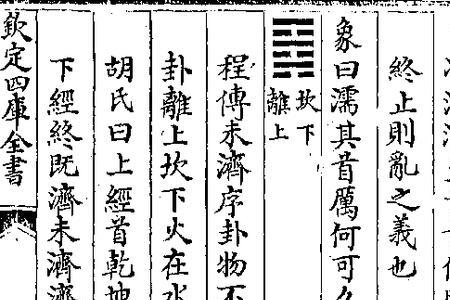 終止則亂之義也
象曰濡其首厲何可久
坎下
離上
程傳未濟序卦物不
卦離上坎下火在水
胡氏曰上經首乾坤
下經終既濟未濟濟
欽定四庫全書